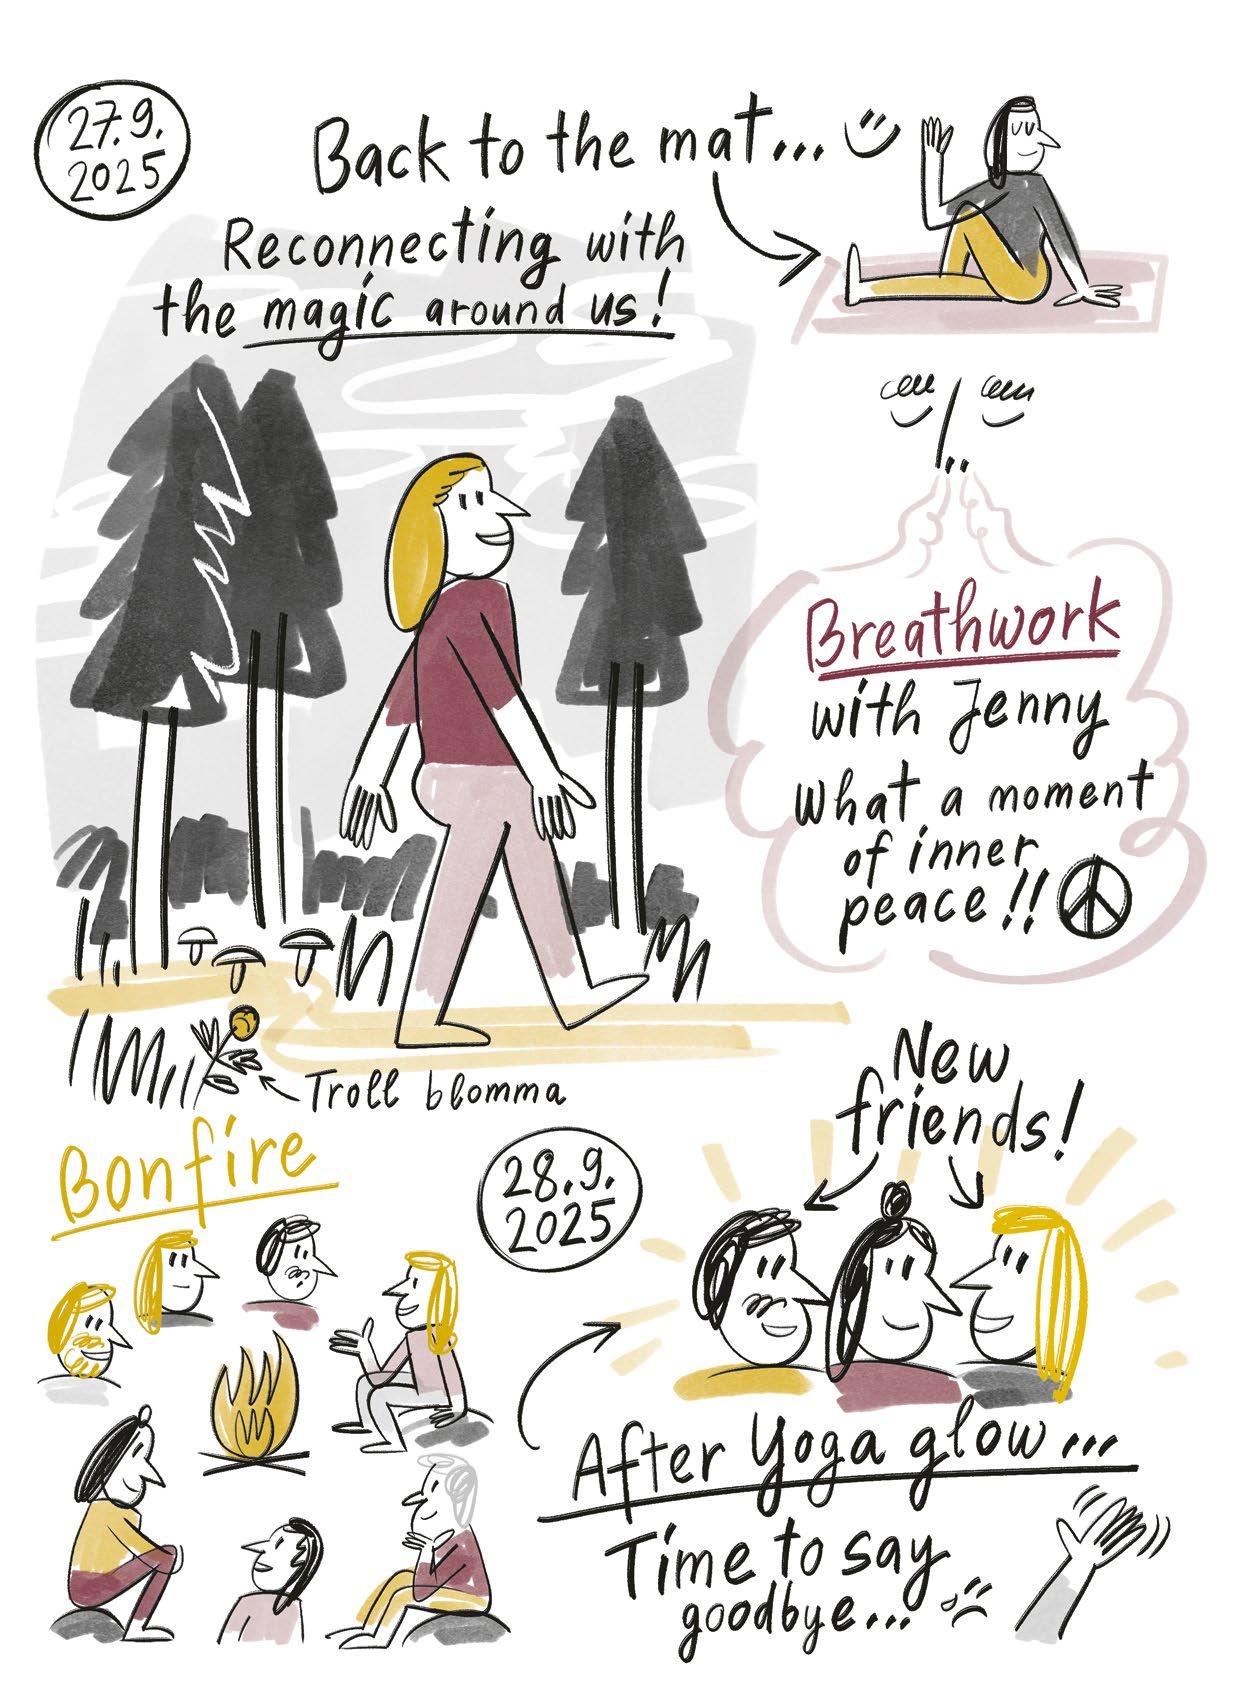 27.9.
2025
Back to the mat...
Reconnecting with
the magic around us!
Breathwork
with Jenny
What a moment
of inner
peace!!
Troll blomma
Bonfire
28.9.
2025
New
friends!
After Yoga glow...
Time to say
goodbye...